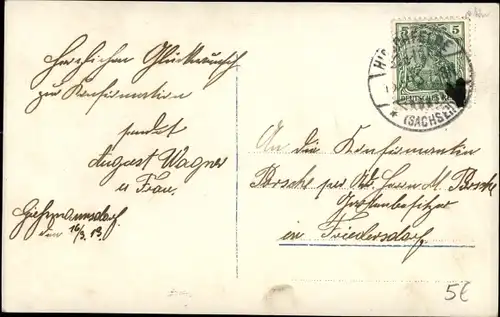 Herzlichen Glückwunsch
zur Konfirmation
sendet
August Wagner
u Frau.
Gießmannsdorf
den 16/3. 13.
5
DEUTSCHES
(SACHSEN)
An die Konfirmantin
per Ad. Herrn M.
Gartenbesitzer
in Friedersdorf.
5€